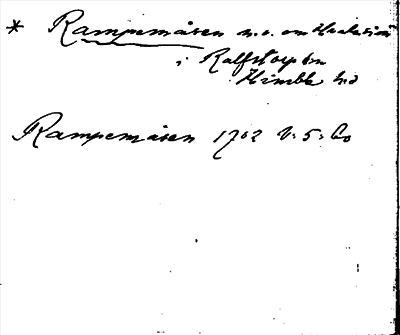 * Rampemåsen n.o. om
i Ralfstorp sn
Himble hd
Rampemåsen 1702 V: 5: 60